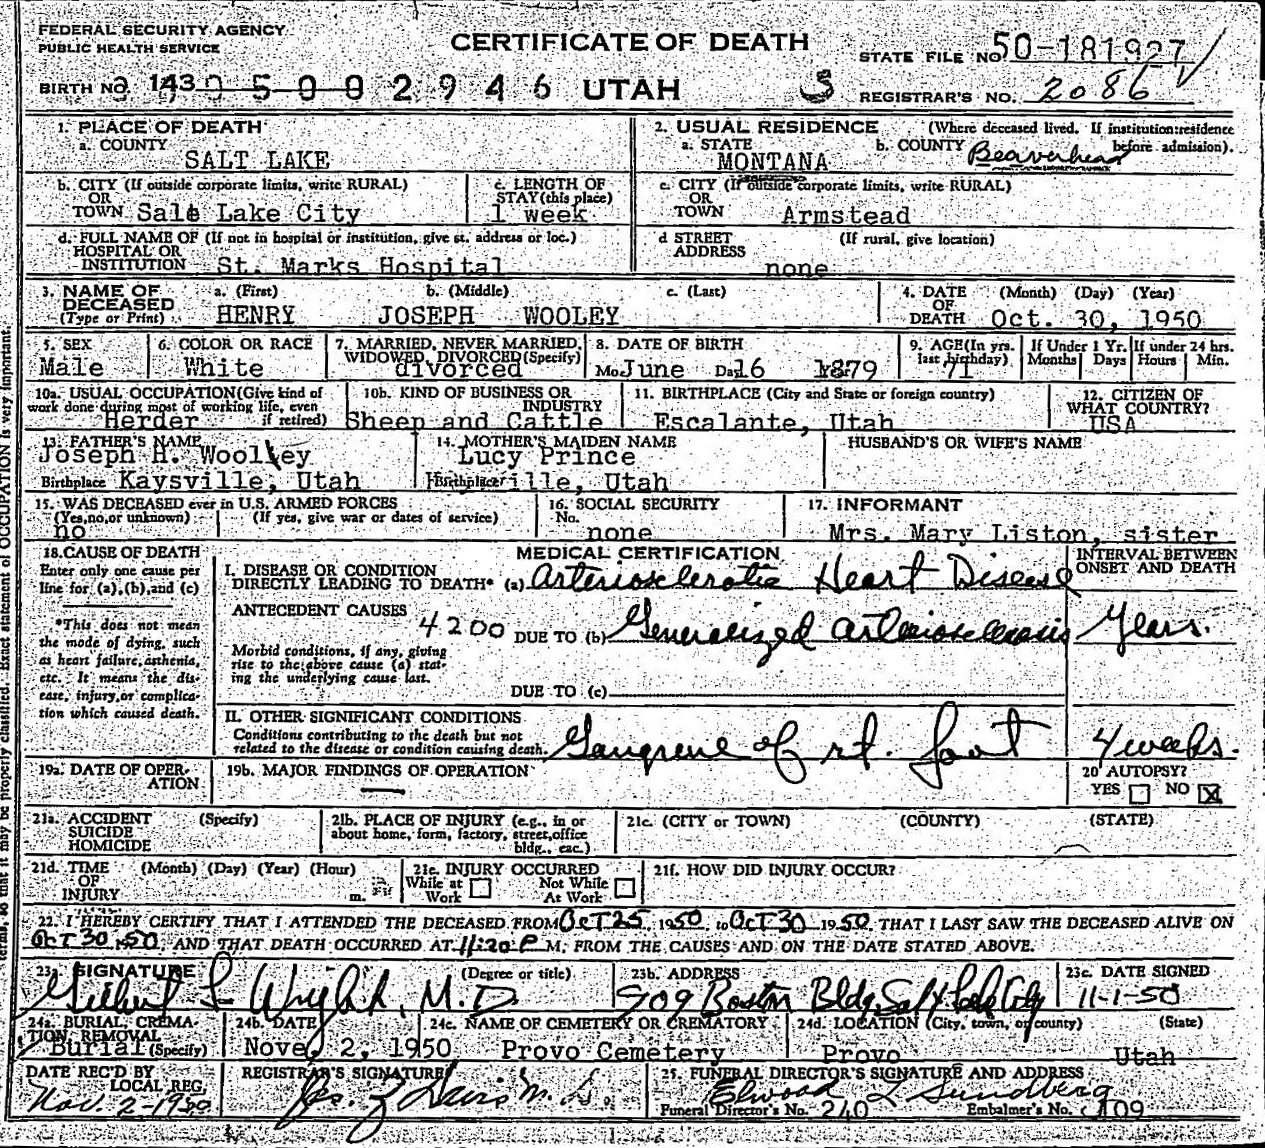 FEDERAL SECURITY AGENCY
PUBLIC HEALTH SERVICE
CERTIFICATE OF DEATH
STATE FILE NO. 50-181927
BIRTH NO. 143 0 5 0 0 2 9 4 6 UTAH
REGISTRAR'S NO. 2086
1. PLACE OF DEATH
a. COUNTY
SALT LAKE
2. USUAL RESIDENCE (Where deceased lived. If institution:residence before admission).
a. STATE
MONTANA
b. COUNTY Beaverhead
b. CITY (If outside corporate limits, write RURAL)
OR
TOWN Sale Lake City
c. LENGTH OF
STAY(this place)
1 week
c. CITY (If outside corporate limits, write RURAL)
OR
TOWN Armstead
d. FULL NAME OF (If not in hospital or institution, give st. address or loc.)
HOSPITAL OR
INSTITUTION St. Marks Hospital
d STREET (If rural, give location)
ADDRESS
none
3. NAME OF
DECEASED
(Type or Print)
a. (First) b. (Middle) c. (Last)
HENRY JOSEPH WOOLEY
4. DATE (Month) (Day) (Year)
OF
DEATH Oct. 30, 1950
5. SEX
Male
6. COLOR OR RACE
White
7. MARRIED, NEVER MARRIED,
WIDOWED, DIVORCED(Specify)
divorced
8. DATE OF BIRTH
Mo. June Da. 16 1879
9. AGE(In yrs.
last birthday)
71
If Under 1 Yr.
Months Days
If under 24 hrs.
Hours Min.
10a. USUAL OCCUPATION(Give kind of
work done during most of working life, even
if retired)
Herder
10b. KIND OF BUSINESS OR
INDUSTRY
Sheep and Cattle
11. BIRTHPLACE (City and State or foreign country)
Escalante, Utah
12. CITIZEN OF
WHAT COUNTRY?
USA
13. FATHER'S NAME
Joseph H. Woolley
Birthplace Kaysville, Utah
14. MOTHER'S MAIDEN NAME
Lucy Prince
Birthplace Utah
HUSBAND'S OR WIFE'S NAME
15. WAS DECEASED ever in U.S. ARMED FORCES
(Yes,no,or unknown) (If yes, give war or dates of service)
no
16. SOCIAL SECURITY
No.
none
17. INFORMANT
Mrs. Mary Liston, sister
18. CAUSE OF DEATH
Enter only one cause per
line for (a),(b),and (c)
*This does not mean
the mode of dying, such
as heart failure, asthenia,
etc. It means the dis-
ease, injury,or complica-
tion which caused death.
MEDICAL CERTIFICATION
INTERVAL BETWEEN
ONSET AND DEATH
I. DISEASE OR CONDITION
DIRECTLY LEADING TO DEATH* (a) Arteriosclerotic Heart Disease
ANTECEDENT CAUSES
4200 DUE TO (b) Generalized arteriosclerosis Years.
Morbid conditions, if any, giving
rise to the above cause (a) stat-
ing the underlying cause last.
DUE TO (c)
II. OTHER SIGNIFICANT CONDITIONS
Conditions contributing to the death but not
related to the disease or condition causing death. Gangrene of rt. foot 4 weeks.
19a. DATE OF OPER-
ATION
19b. MAJOR FINDINGS OF OPERATION
—
20 AUTOPSY?
YES NO X
21a. ACCIDENT (Specify)
SUICIDE
HOMICIDE
21b. PLACE OF INJURY (e.g., in or
about home, form, factory, street,office
bldg., eac.)
21c. (CITY or TOWN) (COUNTY) (STATE)
21d. TIME (Month) (Day) (Year) (Hour)
OF
INJURY m.
21e. INJURY OCCURRED
While at Not While
Work At Work
21f. HOW DID INJURY OCCUR?
22. I HEREBY CERTIFY THAT I ATTENDED THE DECEASED FROM OCT 25, 1950 to OCT 30 1950, THAT I LAST SAW THE DECEASED ALIVE ON
OCT 30 1950, AND THAT DEATH OCCURRED AT 11:20 P M. FROM THE CAUSES AND ON THE DATE STATED ABOVE.
23a SIGNATURE (Degree or title)
Gilbert L Wright, M.D.
23b. ADDRESS
909 Boston Bldg, Salt Lake City
23c. DATE SIGNED
11-1-50
24a. BURIAL, CREMA-
TION, REMOVAL
Burial (Specify)
24b. DATE
Nove. 2, 1950
24c. NAME OF CEMETERY OR CREMATORY
Provo Cemetery
24d. LOCATION (City, town, or county) (State)
Provo Utah
DATE REC'D BY
LOCAL REG.
Nov. 2-1950
REGISTRAR'S SIGNATURE
Jas. Z Davis M.D.
25. FUNERAL DIRECTOR'S SIGNATURE AND ADDRESS
Elwood L Sundberg
Funeral Director's No. 240 Embalmer's No. 109
terms, so that it may be properly classified. Exact statement of OCCUPATION is very important.